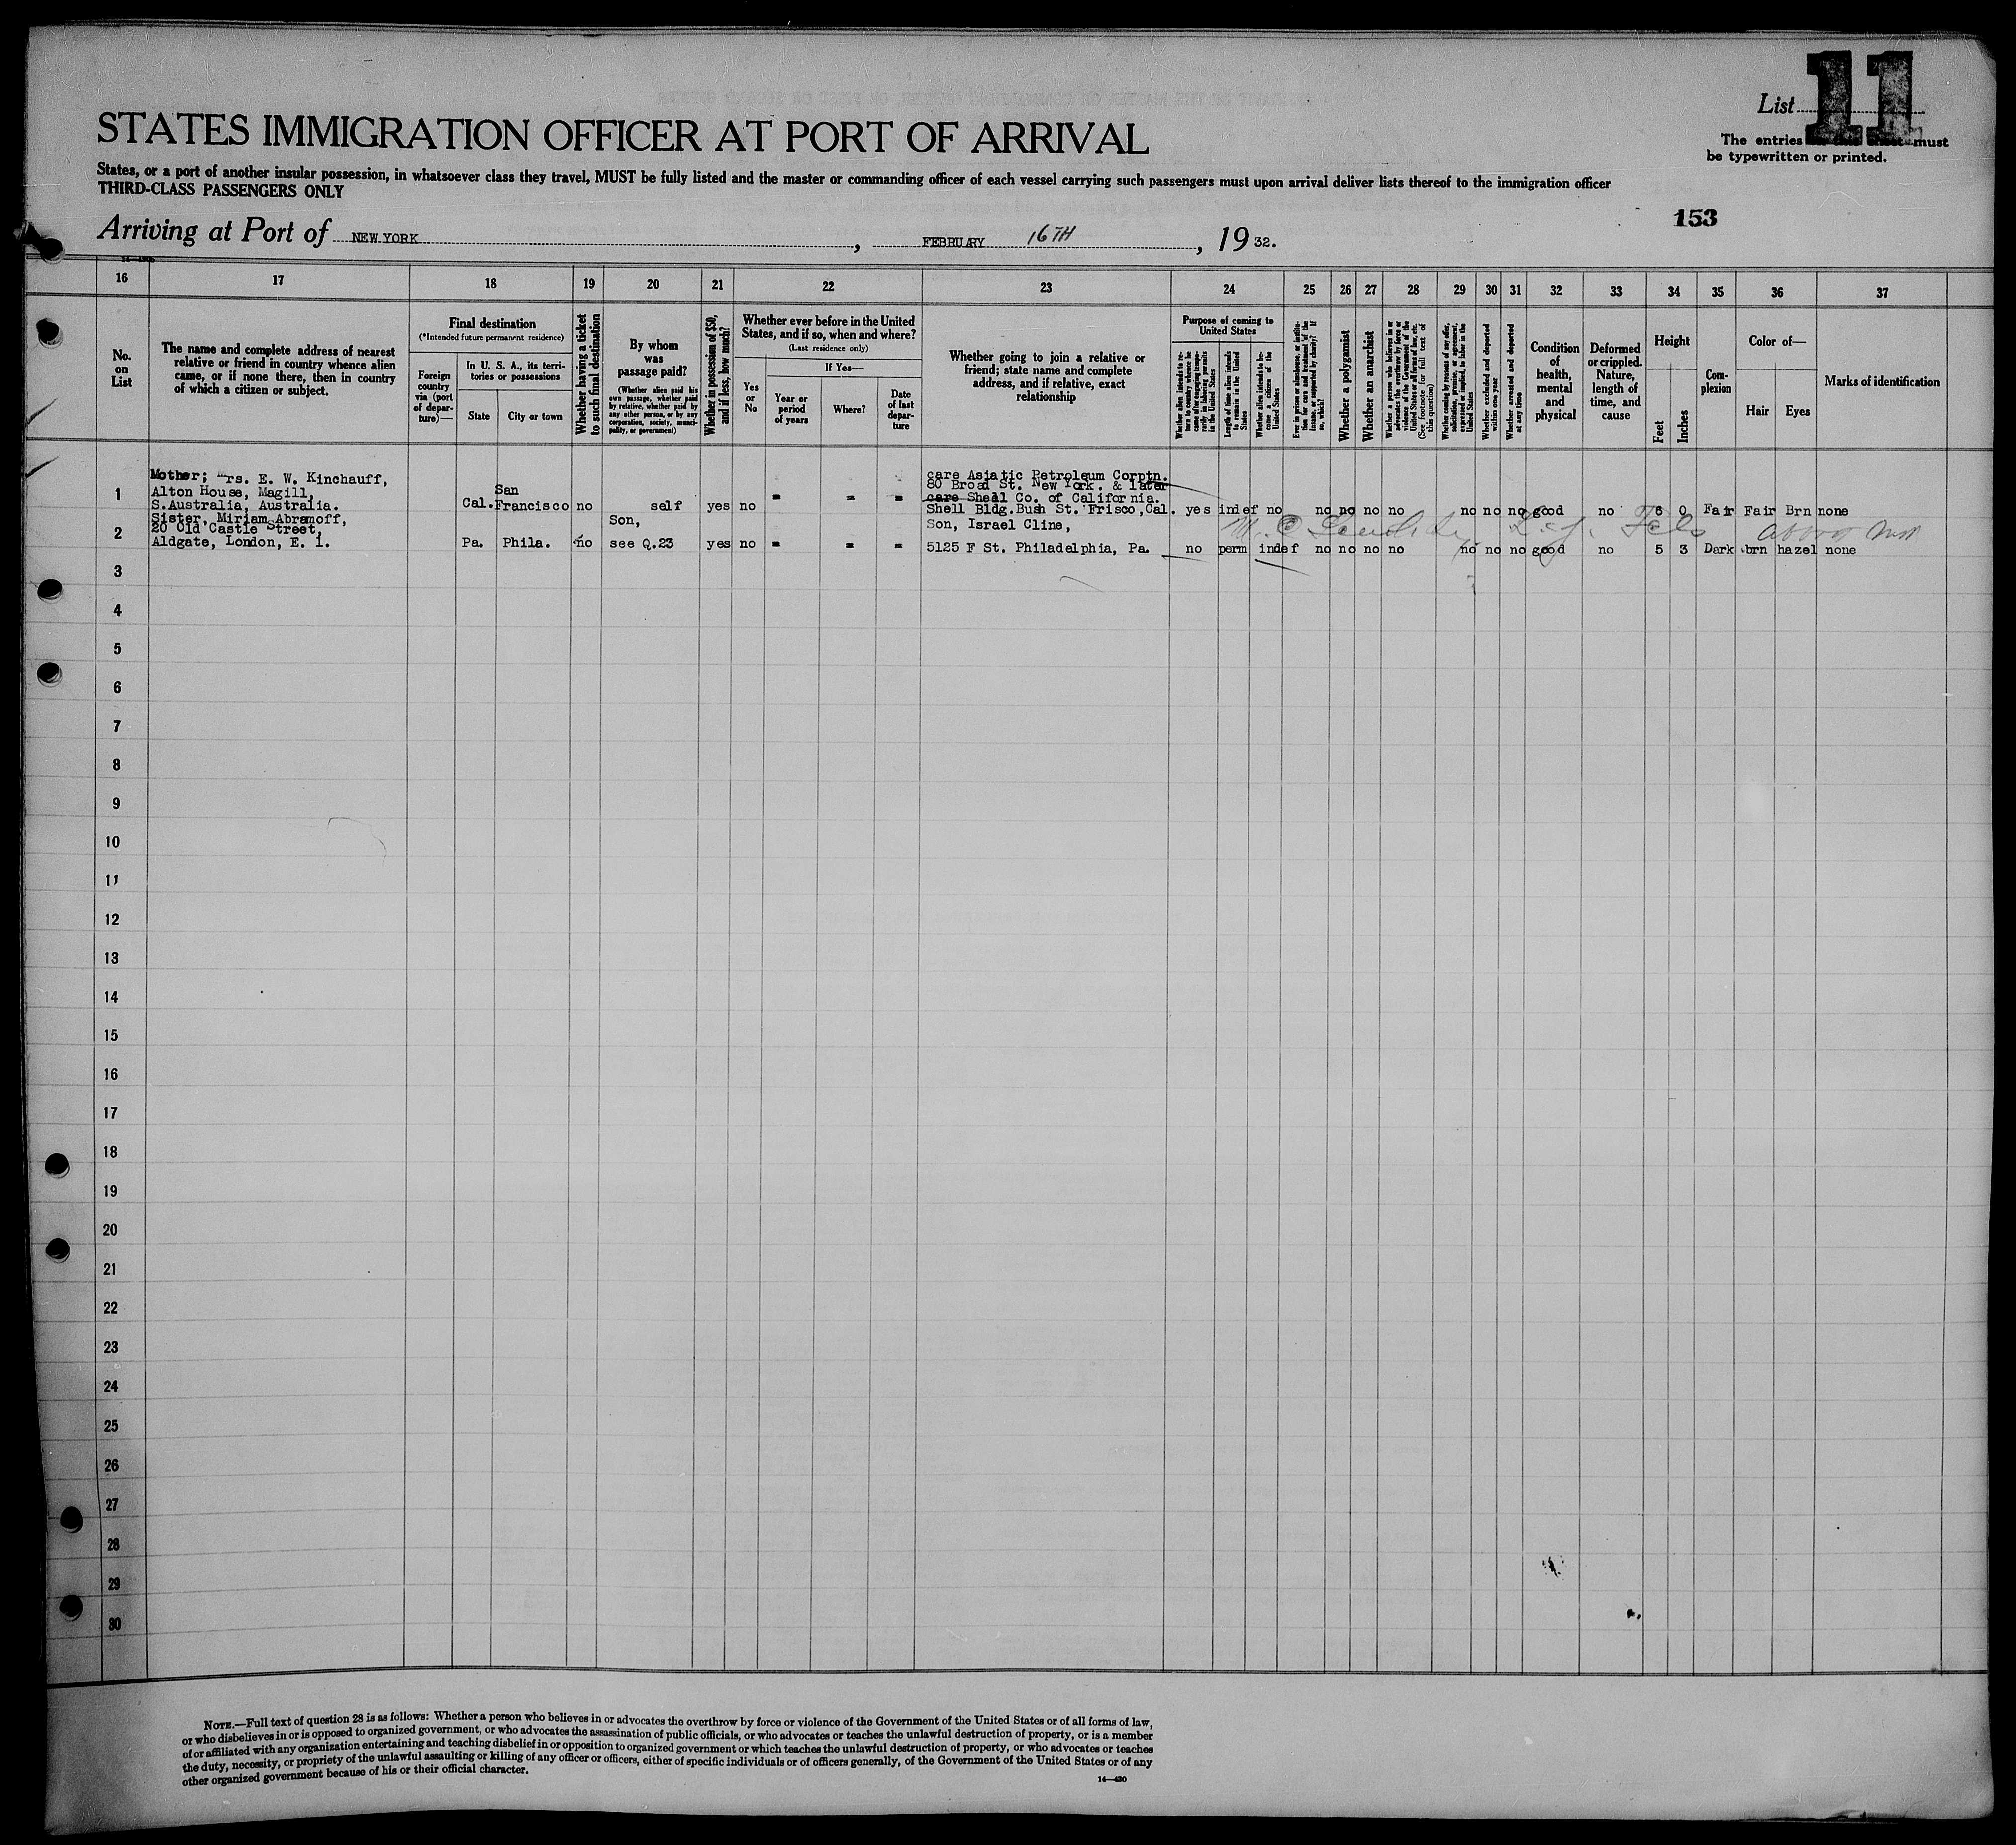 List 11
STATES IMMIGRATION OFFICER AT PORT OF ARRIVAL
The entries on this sheet must
be typewritten or printed.
States, or a port of another insular possession, in whatsoever class they travel, MUST be fully listed and the master or commanding officer of each vessel carrying such passengers must upon arrival deliver lists thereof to the immigration officer
THIRD-CLASS PASSENGERS ONLY
153
Arriving at Port of NEW YORK, FEBRUARY 16TH, 1932.
16 17 18 19 20 21 22 23 24 25 26 27 28 29 30 31 32 33 34 35 36 37
No. on List
The name and complete address of nearest
relative or friend in country whence alien
came, or if none there, then in country
of which a citizen or subject.
Final destination
(*Intended future permanent residence)
Foreign country via (port of departure)—
In U. S. A., its territories or possessions
State
City or town
Whether having a ticket to such final destination
By whom was passage paid?
(Whether alien paid his own passage, whether paid by relative, whether paid by any other person, or by any corporation, society, municipality, or government)
Whether in possession of $50, and if less, how much?
Whether ever before in the United
States, and if so, when and where?
(Last residence only)
Yes or No
If Yes—
Year or period of years
Where?
Date of last departure
Whether going to join a relative or
friend; state name and complete
address, and if relative, exact
relationship
Purpose of coming to United States
Whether alien intends to return to country whence he came after engaging temporarily in laboring pursuits in the United States
Length of time alien intends to remain in the United States
Whether alien intends to become a citizen of the United States
Ever in prison or almshouse, or institution for care and treatment of the insane, or supported by charity? If so, which?
Whether a polygamist
Whether an anarchist
Whether a person who believes in or advocates the overthrow by force or violence of the Government of the United States or all forms of law, etc. (See footnote for full text of this question)
Whether coming by reason of any offer, solicitation, promise, or agreement, expressed or implied, to labor in the United States
Whether excluded and deported within one year
Whether arrested and deported at any time
Condition of health, mental and physical
Deformed or crippled. Nature, length of time, and cause
Height
Feet
Inches
Complexion
Color of—
Hair
Eyes
Marks of identification
1
Mother; Mrs. E. W. Kinchauff,
Alton House, Magill,
S.Australia, Australia.
Cal. San Francisco no self yes no - - -
care Asiatic Petroleum Corptn.
80 Broad St. New York. & later
care Shell Co. of California.
Shell Bldg.Bush St. Frisco,Cal.
yes indef no no no no no no no no good no 6 0 Fair Fair Brn none
2
Sister, Miriam Abramoff,
20 Old Castle Street,
Aldgate, London, E. 1.
Pa. Phila. no Son, see Q.23 yes no - - -
Son, Israel Cline,
5125 F St. Philadelphia, Pa.
no perm indef no no no no no no no good no 5 3 Dark brn hazel none
3
4
5
6
7
8
9
10
11
12
13
14
15
16
17
18
19
20
21
22
23
24
25
26
27
28
29
30
NOTE.—Full text of question 28 is as follows: Whether a person who believes in or advocates the overthrow by force or violence of the Government of the United States or of all forms of law,
or who disbelieves in or is opposed to organized government, or who advocates the assassination of public officials, or who advocates or teaches the unlawful destruction of property, or is a member
of or affiliated with any organization entertaining and teaching disbelief in or opposition to organized government or which teaches the unlawful destruction of property, or who advocates or teaches
the duty, necessity, or propriety of the unlawful assaulting or killing of any officer or officers, either of specific individuals or of officers generally, of the Government of the United States or of any
other organized government because of his or their official character.
14—430